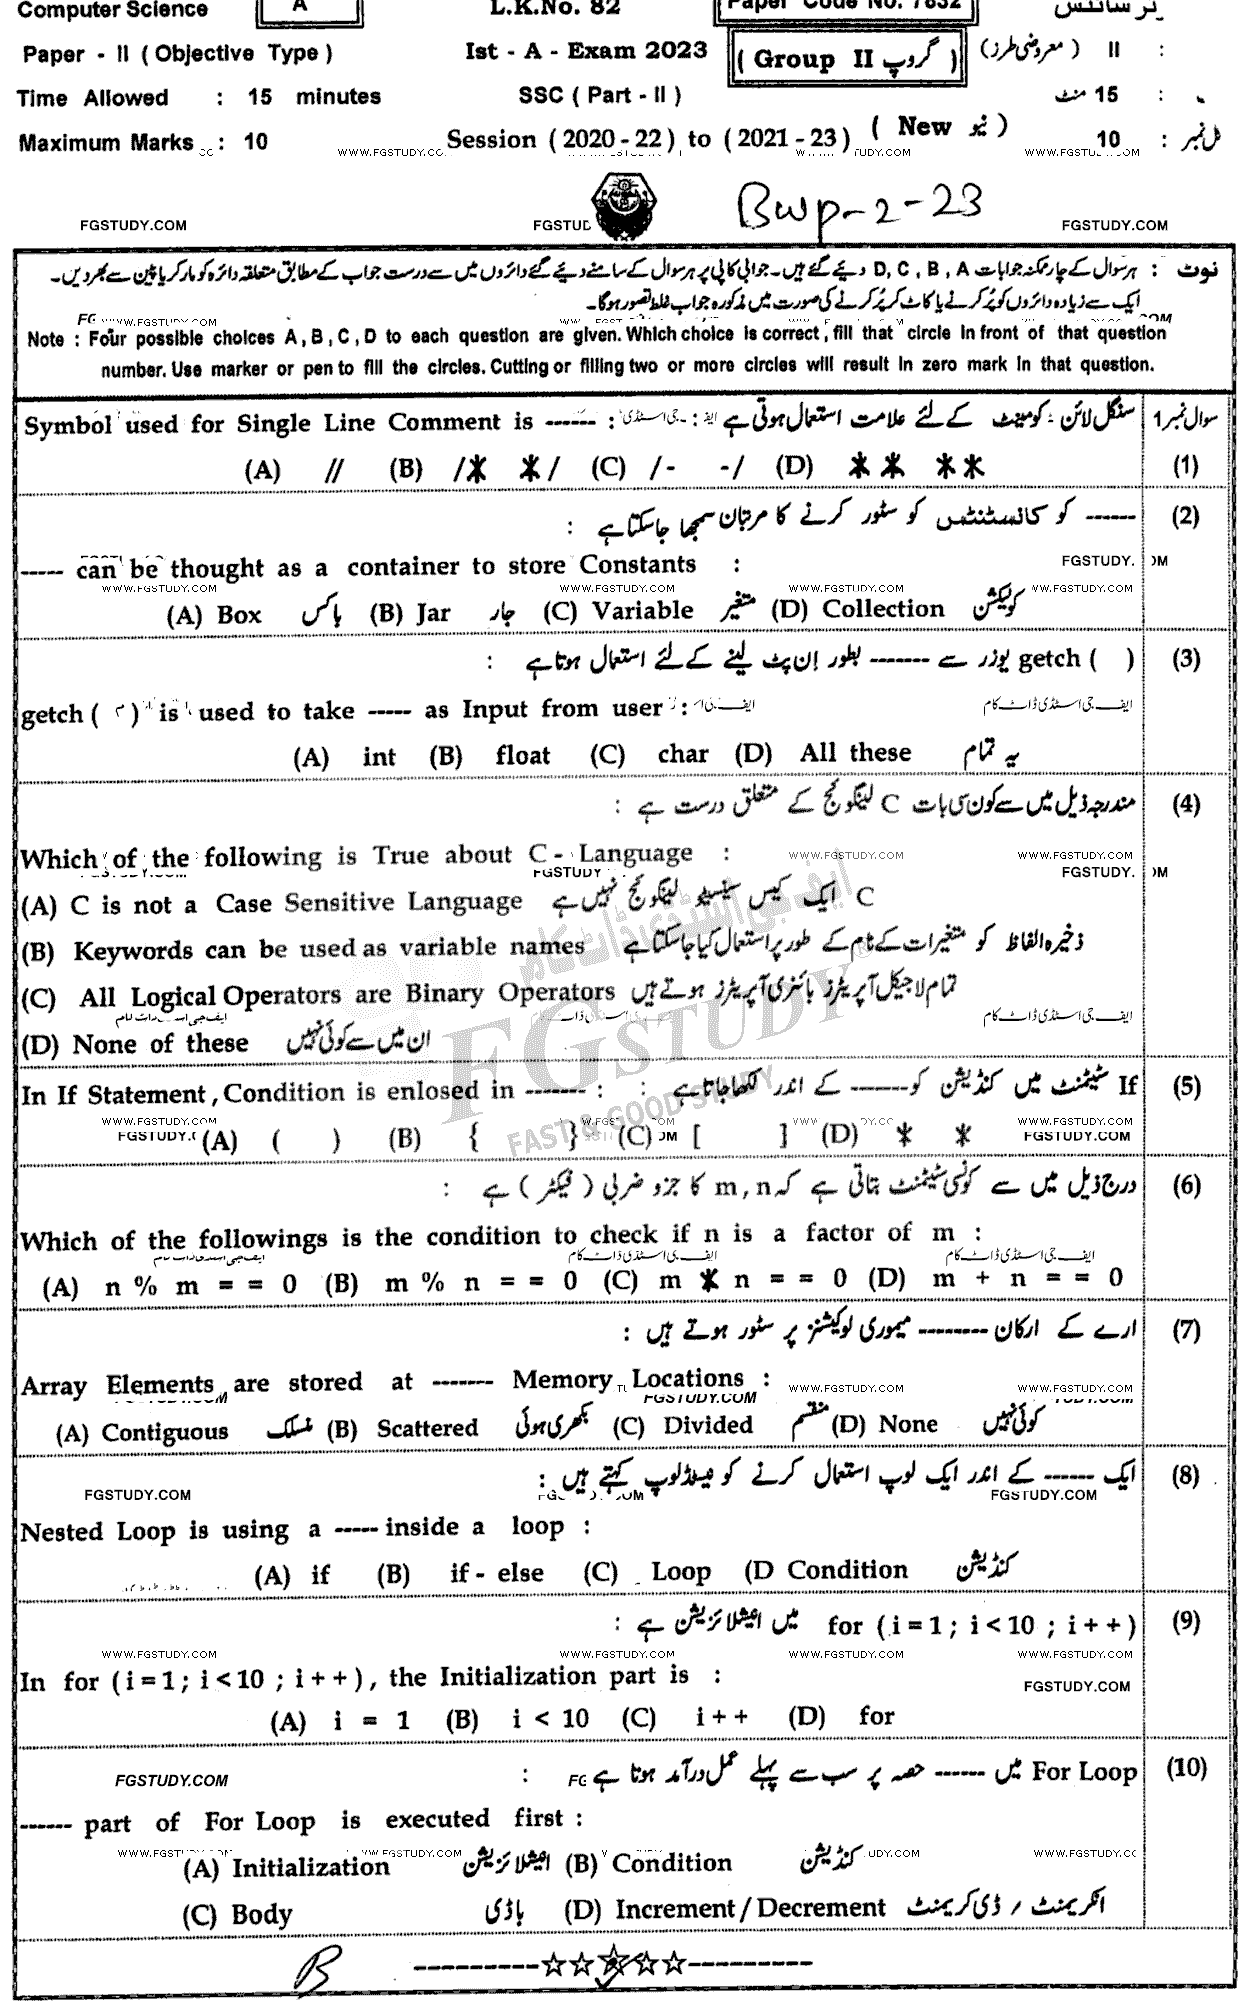 Computer Science A L.K.No. 82 Paper Code No. 7832
Paper - II ( Objective Type ) Ist - A - Exam 2023 ( Group II گروپ ) II ( معروضی طرز ) :
Time Allowed : 15 minutes SSC ( Part - II ) 15 منٹ :
Maximum Marks : 10 Session ( 2020 - 22 ) to ( 2021 - 23 ) ( New نیو ) 10 :
WWW.FGSTUDY.CO
Bwp-2-23
FGSTUDY.COM FGSTUD FGSTUDY.COM
نوٹ : ہر سوال کے چار ممکنہ جوابات D, C, B, A دیئے گئے ہیں۔ جوابی کاپی پر ہر سوال کے سامنے دیئے گئے دائروں میں سے درست جواب کے مطابق متعلقہ دائرہ کو مارکر یا پین سے بھر دیں۔
ایک سے زیادہ دائروں کو پُر کرنے یا کاٹ کر پُر کرنے کی صورت میں مذکورہ جواب غلط تصور ہوگا۔
Note : Four possible choices A, B, C, D to each question are given. Which choice is correct, fill that circle in front of that question
number. Use marker or pen to fill the circles. Cutting or filling two or more circles will result in zero mark in that question.
سوال نمبر 1 سنگل لائن کومینٹ کے لئے علامت استعمال ہوتی ہے :
Symbol used for Single Line Comment is ------ :
(1) (A) // (B) /* */ (C) /- -/ (D) ** **
(2) ------ کو کانسٹنٹس کو سٹور کرنے کا مرتبان سمجھا جاسکتا ہے :
----- can be thought as a container to store Constants :
WWW.FGSTUDY.COM
(A) Box باکس (B) Jar جار (C) Variable متغیر (D) Collection کولیکشن
(3) getch ( ) یوزر سے ------- بطور اِن پٹ لینے کے لئے استعمال ہوتا ہے :
getch ( ) is used to take ----- as Input from user :
ایف جی اسٹڈی ڈاٹ کام
(A) int (B) float (C) char (D) All these یہ تمام
(4) مندرجہ ذیل میں سے کون سی بات C لینگوئج کے متعلق درست ہے :
Which of the following is True about C - Language :
WWW.FGSTUDY.COM WWW.FGSTUDY.COM
(A) C is not a Case Sensitive Language C ایک کیس سینسیٹو لینگوئج نہیں ہے
(B) Keywords can be used as variable names ذخیرہ الفاظ کو متغیرات کے نام کے طور پر استعمال کیا جاسکتا ہے
(C) All Logical Operators are Binary Operators تمام لاجیکل آپریٹرز بائنری آپریٹرز ہوتے ہیں
(D) None of these ان میں سے کوئی نہیں
ایف جی اسٹڈی ڈاٹ کام
FGSTUDY
FAST & GOOD STUDY
(5) If سٹیٹمنٹ میں کنڈیشن کو ------- کے اندر لکھا جاتا ہے :
In If Statement, Condition is enlosed in ------- :
WWW.FGSTUDY.COM
(A) ( ) (B) { } (C) [ ] (D) * *
FGSTUDY.COM
(6) درج ذیل میں سے کونسی سٹیٹمنٹ بتاتی ہے کہ m, n کا جزو ضربی ( فیکٹر ) ہے :
Which of the followings is the condition to check if n is a factor of m :
ایف جی اسٹڈی ڈاٹ کام
(A) n % m = = 0 (B) m % n = = 0 (C) m * n = = 0 (D) m + n = = 0
(7) ارے کے ارکان -------- میموری لوکیشنز پر سٹور ہوتے ہیں :
Array Elements are stored at ------- Memory Locations :
WWW.FGSTUDY.COM WWW.FGSTUDY.COM
(A) Contiguous منسلک (B) Scattered بکھری ہوئی (C) Divided منقسم (D) None کوئی نہیں
(8) ایک ------ کے اندر ایک لوپ استعمال کرنے کو نیسٹڈ لوپ کہتے ہیں :
FGSTUDY.COM FGSTUDY.COM
Nested Loop is using a ----- inside a loop :
(A) if (B) if - else (C) Loop (D Condition کنڈیشن
(9) for ( i = 1 ; i < 10 ; i + + ) میں انیشلائزیشن ہے :
WWW.FGSTUDY.COM WWW.FGSTUDY.COM WWW.FGSTUDY.COM WWW.FGSTUDY.COM
In for ( i = 1 ; i < 10 ; i + + ) , the Initialization part is :
FGSTUDY.COM
(A) i = 1 (B) i < 10 (C) i + + (D) for
(10) For Loop میں ------ حصہ پر سب سے پہلے عمل درآمد ہوتا ہے :
FGSTUDY.COM
------ part of For Loop is executed first :
(A) Initialization انیشلائزیشن (B) Condition کنڈیشن
(C) Body باڈی (D) Increment / Decrement انکریمنٹ / ڈی کریمنٹ
B